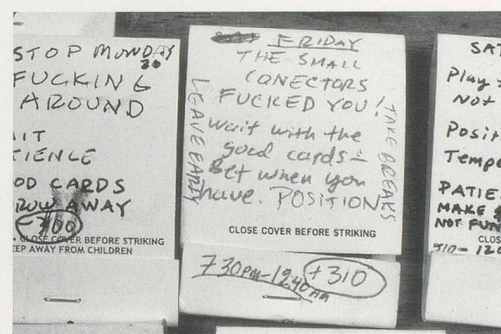 STOP MONDAY
30
FUCKING
AROUND
IT
TIENCE
OD CARDS
ROW AWAY
-300
CLOSE COVER BEFORE STRIKING
EEP AWAY FROM CHILDREN
FRIDAY
THE SMALL
CONECTORS
FUCKED YOU!
Wait with the
good cards -
Bet when you
have. POSITION
LEAVE EARLY
TAKE BREAKS
CLOSE COVER BEFORE STRIKING
730PM-1240AM
+310
SAT
Play
Not
Posit
Tempe
PATIE
MAKE
NOT FUN
CLOS